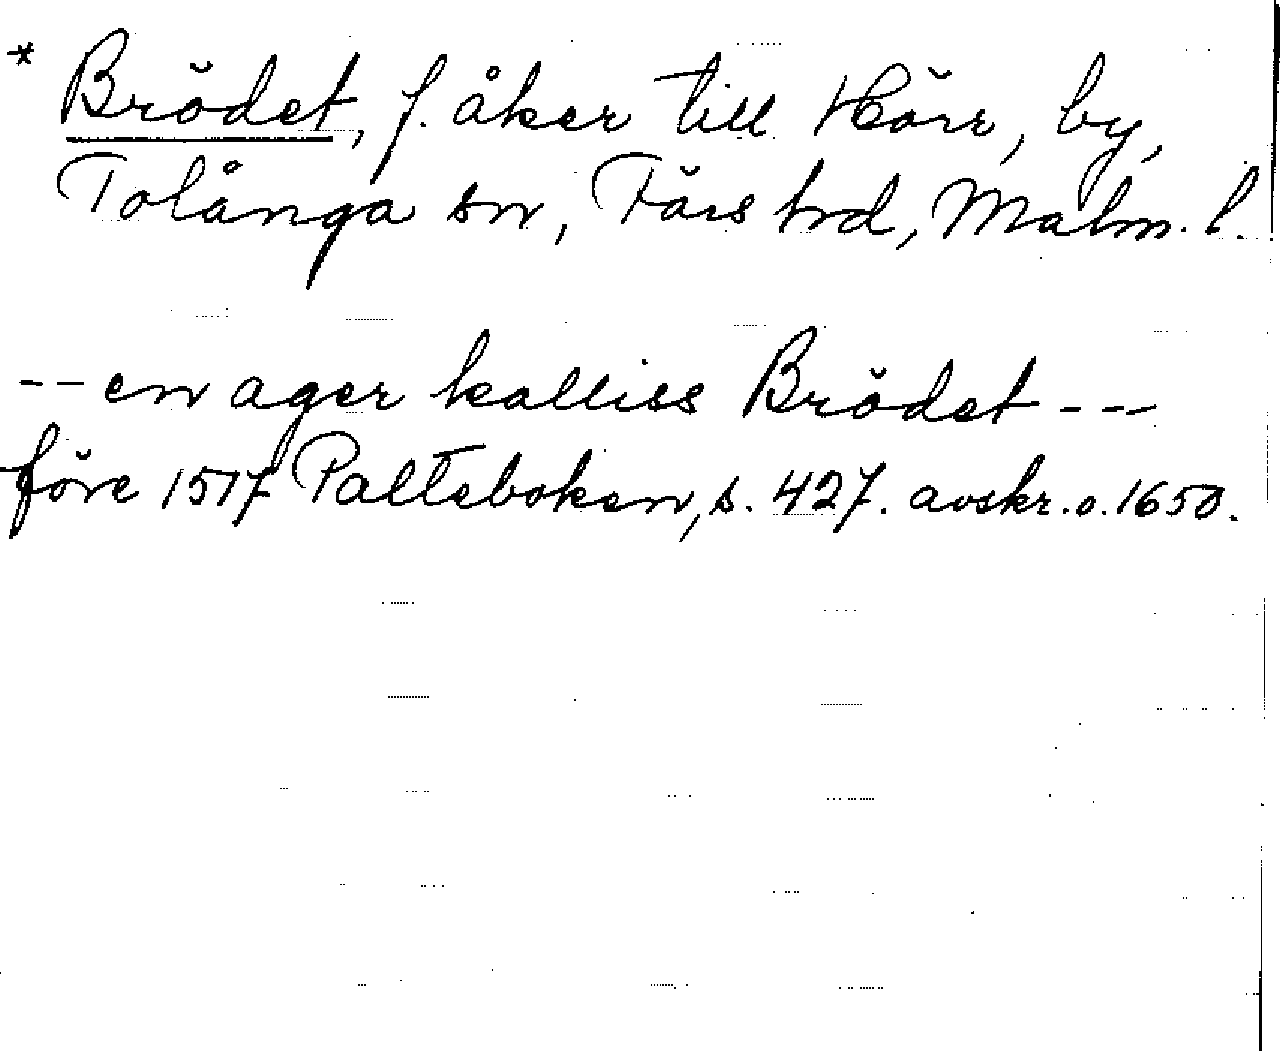 * Brödet, f. åker till Hörr, by,
Tolånga sn, Färs hrd, Malm. l.
-- en ager kalliss Brödet ---
före 1517 Palteboken, s. 427. avskr. o. 1650.